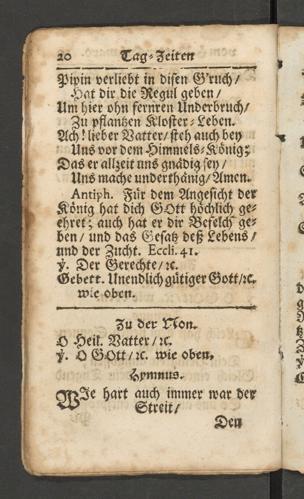 20 Tag-Zeiten
Pipin verliebt in disen G'ruch/
Hat dir die Regul geben/
Um hier ohn fernren Underbruch/
Zu pflantzen Kloster-Leben.
Ach! lieber Vatter/ steh auch bey
Uns vor dem Himmels-König;
Das er allzeit uns gnädig sey/
Uns mache underthänig/ Amen.
Antiph. Für dem Angesicht der
König hat dich GOtt höchlich ge-
ehret; auch hat er dir Befelch ge-
ben/ und das Gesatz deß Lebens/
und der Zucht. Eccli. 41.
℣. Der Gerechte/ ꝛc.
Gebett. Unendlich gütiger Gott/ꝛc.
wie oben.
Zu der Non.
O Heil. Vatter/ ꝛc.
℣. O GOtt/ ꝛc. wie oben.
Hymnus.
WIe hart auch immer war der
Streit/
Den